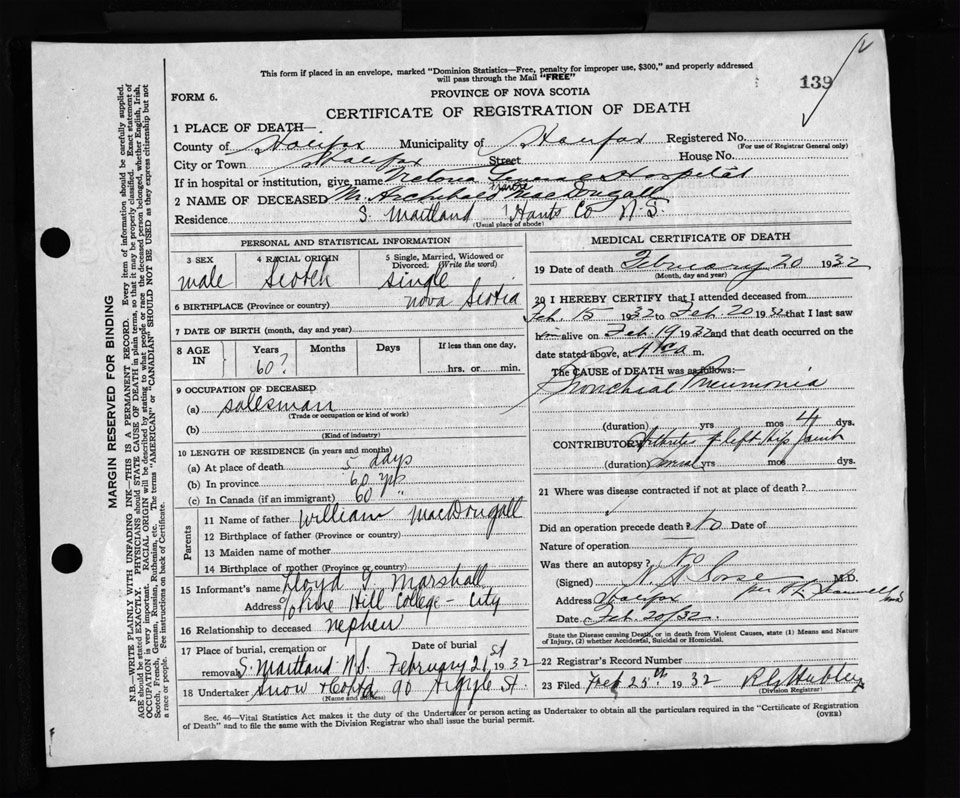 This form if placed in an envelope, marked "Dominion Statistics—Free, penalty for improper use, $300," and properly addressed
will pass through the Mail "FREE"
139
PROVINCE OF NOVA SCOTIA
FORM 6.
CERTIFICATE OF REGISTRATION OF DEATH
1 PLACE OF DEATH—
County of Halifax Municipality of Halifax Registered No.
(For use of Registrar General only)
City or Town Halifax Street House No.
If in hospital or institution, give name Victoria General Hospital
2 NAME OF DECEASED Mr. Archibald MacDougall
Residence S. Maitland Hants Co N.S.
(Usual place of abode)
PERSONAL AND STATISTICAL INFORMATION
3 SEX
male
4 RACIAL ORIGIN
Scotch
5 Single, Married, Widowed or Divorced. (Write the word)
single
6 BIRTHPLACE (Province or country) Nova Scotia
7 DATE OF BIRTH (month, day and year)
8 AGE IN
Years
60?
Months
Days
If less than one day,
hrs. or min.
9 OCCUPATION OF DECEASED
(a) salesman
(Trade or occupation or kind of work)
(b)
(Kind of industry)
10 LENGTH OF RESIDENCE (in years and months)
(a) At place of death 5 days
(b) In province 60 yrs
(c) In Canada (if an immigrant) 60 "
Parents
11 Name of father William MacDougall
12 Birthplace of father (Province or country)
13 Maiden name of mother
14 Birthplace of mother (Province or country)
15 Informant's name Lloyd G. Marshall
Address Pine Hill College - City
16 Relationship to deceased nephew
17 Place of burial, cremation or Date of burial
removal S. Maitland N.S. February 21st 1932
18 Undertaker Snow & Co Ltd 90 Argyle St.
(Name and address)
MEDICAL CERTIFICATE OF DEATH
19 Date of death February 20 1932
(Month, day and year)
20 I HEREBY CERTIFY that I attended deceased from
Feb. 15 1932 to Feb. 20 1932 that I last saw
him alive on Feb. 19 1932 and that death occurred on
date stated above, at a m.
The CAUSE of DEATH was as follows:—
Bronchial Pneumonia
(duration) yrs mos 4 dys.
CONTRIBUTORY Arthritis of left Hip Joint
(duration) yrs mos dys.
21 Where was disease contracted if not at place of death?
Did an operation precede death? No Date of
Nature of operation
Was there an autopsy? No
(Signed) M.D.
Address Halifax
Date Feb. 20/32.
State the Disease causing Death, or in death from Violent Causes, state (1) Means and Nature
of Injury, (2) whether Accidental, Suicidal or Homicidal.
22 Registrar's Record Number
23 Filed Feb 25th 1932
(Division Registrar)
Sec. 46—Vital Statistics Act makes it the duty of the Undertaker or person acting as Undertaker to obtain all the particulars required in the "Certificate of Registration
of Death" and to file the same with the Division Registrar who shall issue the burial permit.
(OVER)
MARGIN RESERVED FOR BINDING
N.B.—WRITE PLAINLY WITH UNFADING INK—THIS IS A PERMANENT RECORD. Every item of information should be carefully supplied.
AGE should be stated EXACTLY. PHYSICIANS should STATE CAUSE OF DEATH in plain terms, so that it may be properly classified. Exact statement of
OCCUPATION is very important. RACIAL ORIGIN will be described by stating to what people or race the deceased person belonged, whether English, Irish,
Scotch, French, German, Russian, Ruthenian, etc. The terms "AMERICAN" or "CANADIAN" SHOULD NOT BE USED as they express citizenship but not
a race or people. See instructions on back of Certificate.